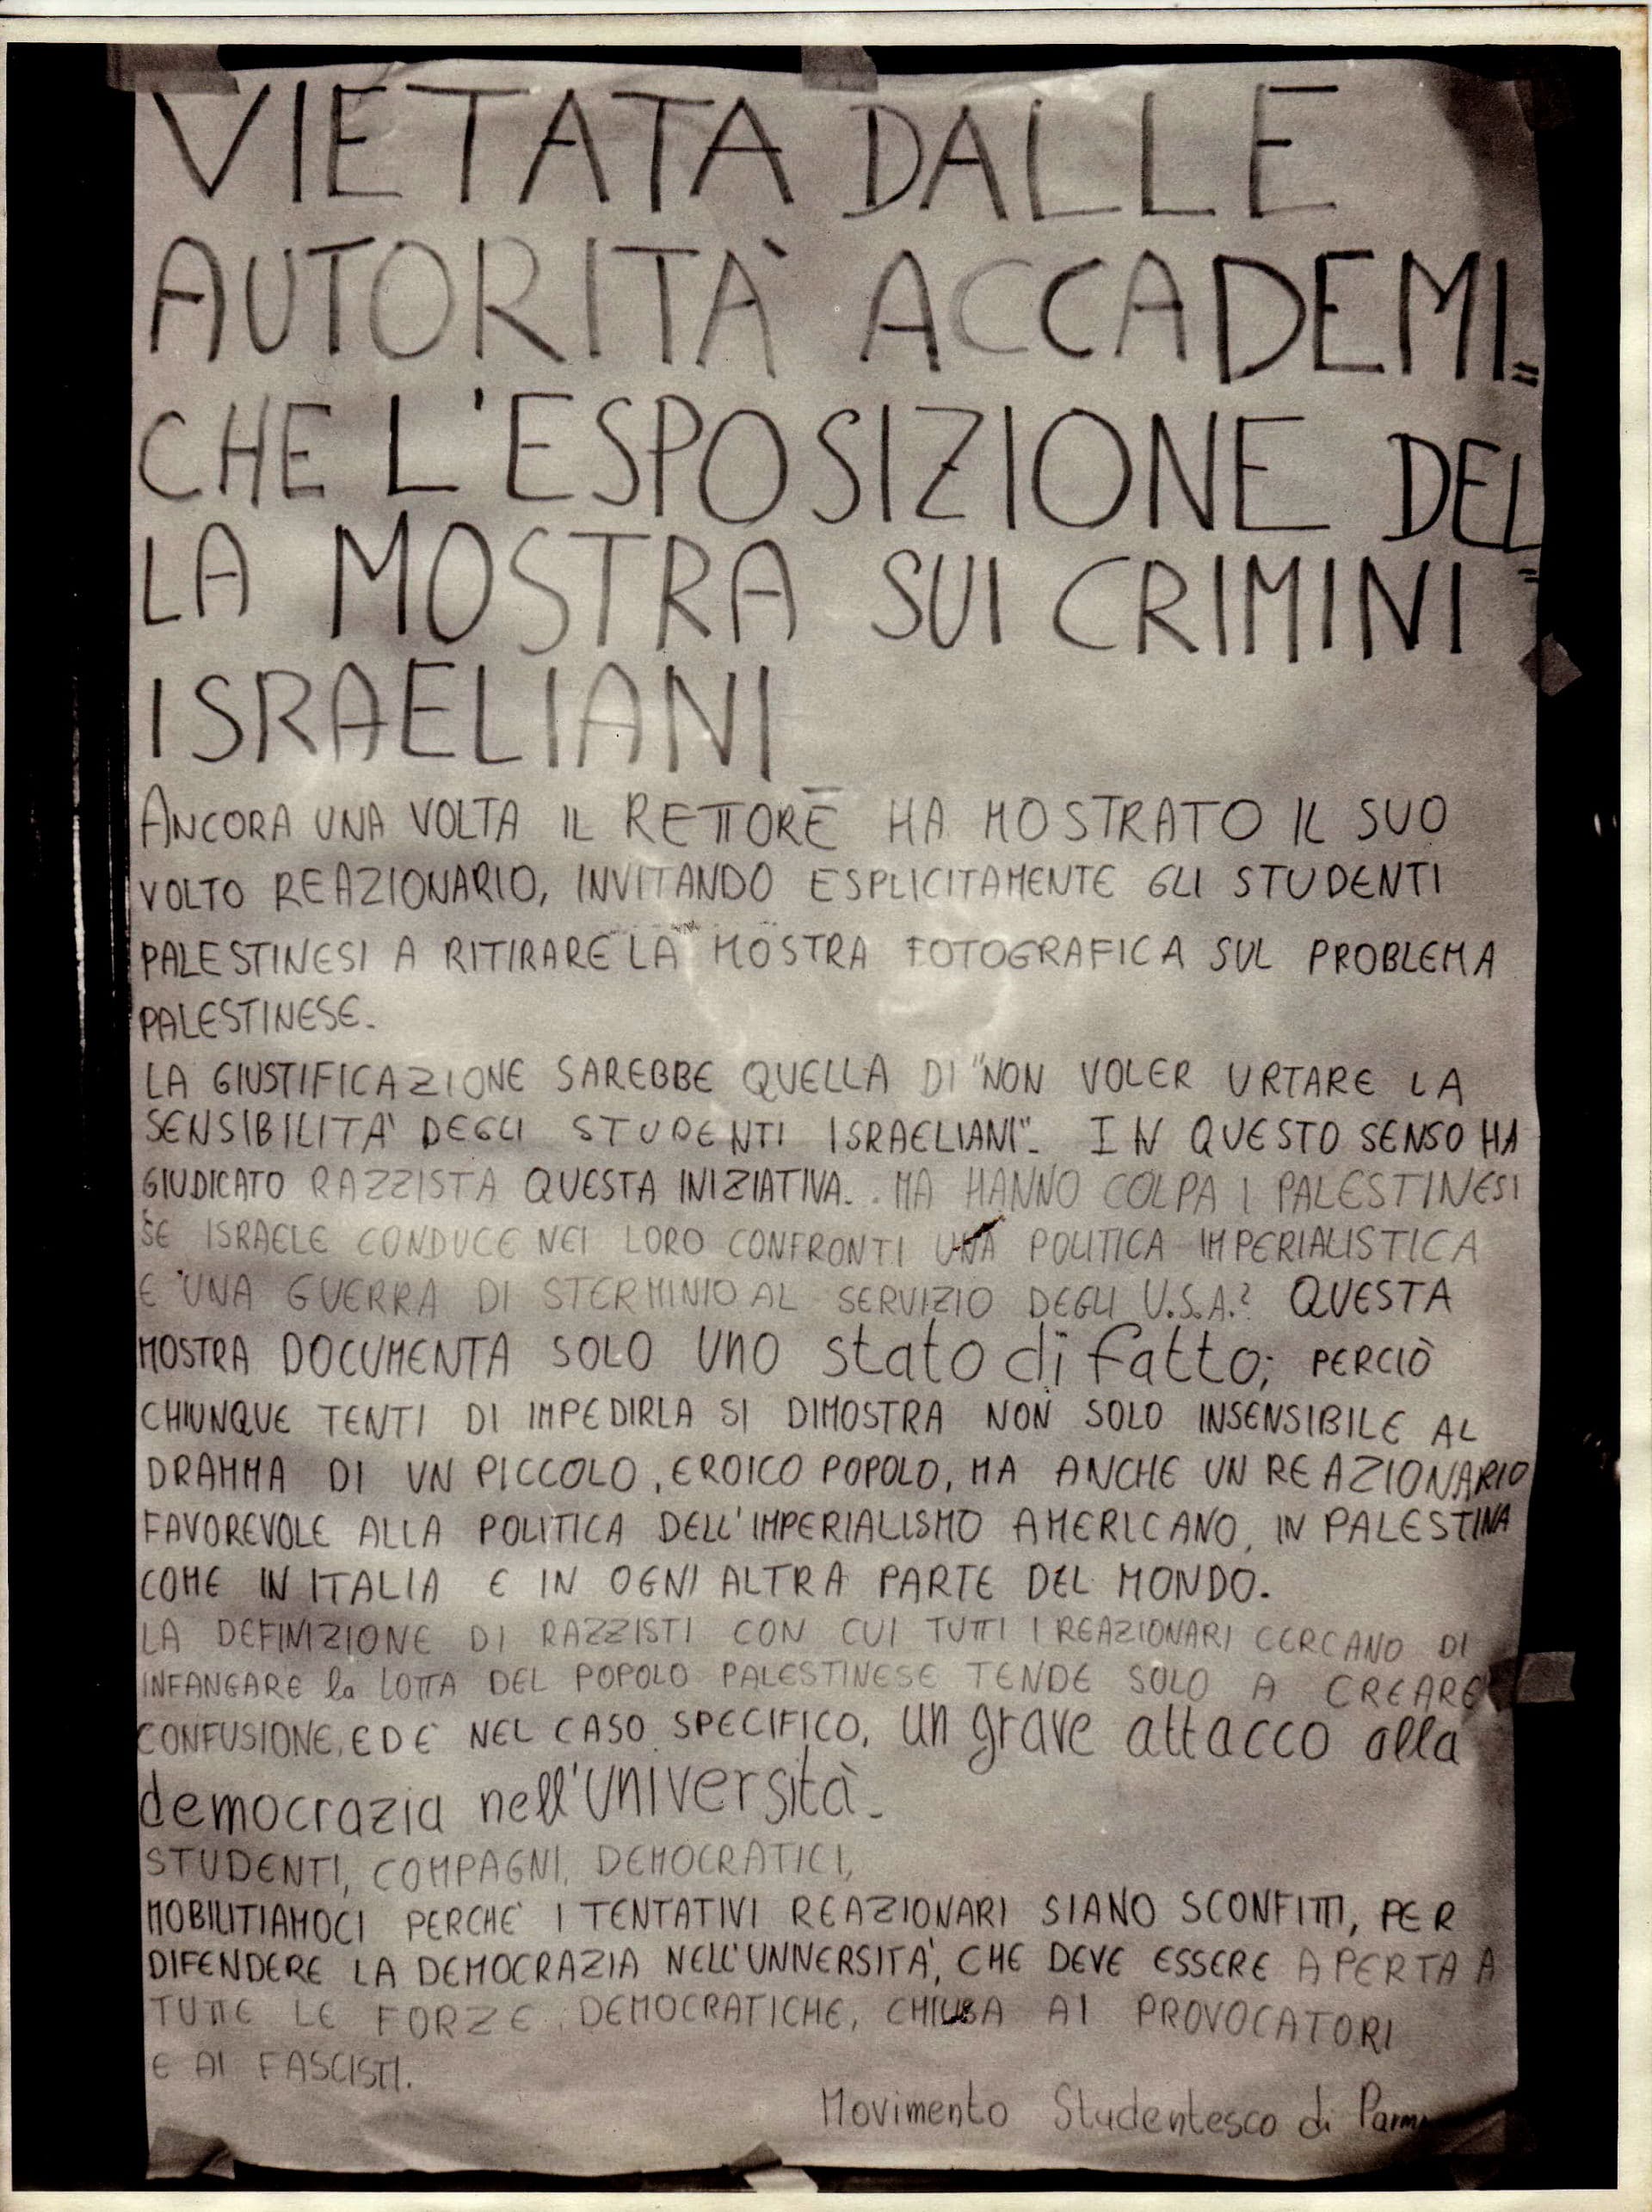 VIETATA DALLE
AUTORITÀ ACCADEMI=
CHE L'ESPOSIZIONE DEL=
LA MOSTRA SUI CRIMINI
ISRAELIANI
ANCORA UNA VOLTA IL RETTORE HA MOSTRATO IL SUO
VOLTO REAZIONARIO, INVITANDO ESPLICITAMENTE GLI STUDENTI
PALESTINESI A RITIRARE LA MOSTRA FOTOGRAFICA SUL PROBLEMA
PALESTINESE.
LA GIUSTIFICAZIONE SAREBBE QUELLA DI "NON VOLER URTARE LA
SENSIBILITA' DEGLI STUDENTI ISRAELIANI". IN QUESTO SENSO HA
GIUDICATO RAZZISTA QUESTA INIZIATIVA. MA HANNO COLPA I PALESTINESI
SE ISRAELE CONDUCE NEI LORO CONFRONTI UNA POLITICA IMPERIALISTICA
E UNA GUERRA DI STERMINIO AL SERVIZIO DEGLI U.S.A.? QUESTA
MOSTRA DOCUMENTA SOLO UNO stato di fatto; PERCIÒ
CHIUNQUE TENTI DI IMPEDIRLA SI DIMOSTRA NON SOLO INSENSIBILE AL
DRAMMA DI UN PICCOLO, EROICO POPOLO, MA ANCHE UN REAZIONARIO
FAVOREVOLE ALLA POLITICA DELL'IMPERIALISMO AMERICANO, IN PALESTINA
COME IN ITALIA E IN OGNI ALTRA PARTE DEL MONDO.
LA DEFINIZIONE DI RAZZISTI CON CUI TUTTI I REAZIONARI CERCANO DI
INFANGARE la LOTTA DEL POPOLO PALESTINESE TENDE SOLO A CREARE
CONFUSIONE, ED E' NEL CASO SPECIFICO, un grave attacco alla
democrazia nell'università.
STUDENTI, COMPAGNI, DEMOCRATICI,
MOBILITIAMOCI PERCHE' I TENTATIVI REAZIONARI SIANO SCONFITTI, PER
DIFENDERE LA DEMOCRAZIA NELL'UNIVERSITA', CHE DEVE ESSERE APERTA A
TUTTE LE FORZE DEMOCRATICHE, CHIUSA AI PROVOCATORI
E AI FASCISTI.
Movimento Studentesco di Parma